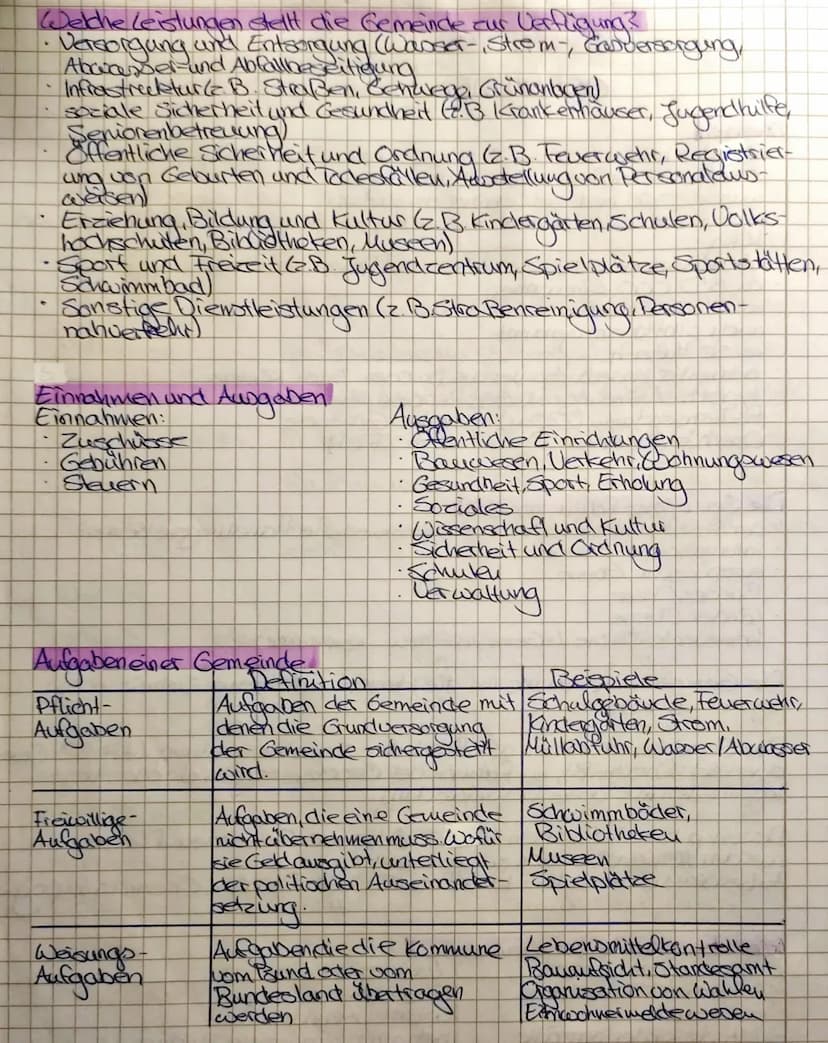 Welche Leistungen stellt die Gemeinde zur Verfügung?
· Versorgung und Entsorgung (Wasser-, Strom-, Gasversorgung,
Abwasser- und Abfallbeseitigung
· Infrastruktur (z.B. Straßen, Gehwege, Grünanlagen)
· soziale Sicherheit und Gesundheit (z.B Krankenhäuser, Jugendhilfe,
Seniorenbetreuung)
· Öffentliche Sicherheit und Ordnung (z.B. Feuerwehr, Registrier-
ung von Geburten und Todesfällen, Ausstellung von Personalaus-
weisen)
· Erziehung, Bildung und Kultur (z.B. Kindergärten, Schulen, Volks-
hochschulen, Bibliotheken, Museen)
· Sport und Freizeit (z.B. Jugendzentrum, Spielplätze, Sportstätten,
Schwimmbad)
· Sonstige Dienstleistungen (z.B. Straßenreinigung, Personen-
nahverkehr)
Einnahmen und Ausgaben
Einnahmen:
· Zuschüsse
· Gebühren
· Steuern
Ausgaben:
· Öffentliche Einrichtungen
· Bauwesen, Verkehr, Wohnungswesen
· Gesundheit, Sport, Erholung
· Soziales
· Wissenschaft und Kultur
· Sicherheit und Ordnung
· Schulen
· Verwaltung
Aufgaben einer Gemeinde
Definition
Beispiele
Pflicht-
Aufgaben
Aufgaben der Gemeinde mit
denen die Grundversorgung
der Gemeinde sichergestellt
wird.
Schulgebäude, Feuerwehr,
Kindergärten, Strom,
Müllabfuhr, Wasser/Abwasser
Freiwillige-
Aufgaben
Aufgaben, die eine Gemeinde
nicht übernehmen muss. Wofür
sie Geld ausgibt, unterliegt
der politischen Auseinander-
setzung.
Schwimmbäder,
Bibliotheken
Museen
Spielplätze
Weisungs-
Aufgaben
Aufgaben die die Kommune
vom Bund oder vom
Bundesland übertragen
werden
Lebensmittelkontrolle
Bauaufsicht, Standesamt
Organisation von Wahlen
Einwohnermeldewesen